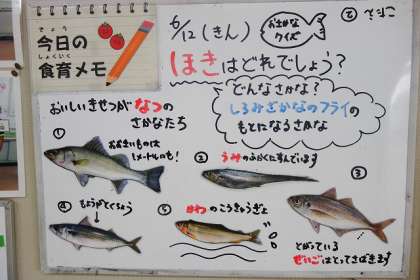 きょう
今日の
しょくいく
食育メモ
6/12(きん)
おさかな
クイズ
ほきはどれでしょう？
どんなさかな？
しろみざかなのフライの
もとになるさかな
おいしいきせつがなつの
さかなたち
①
おおきいものは
1メートルも！
②
うみのふかくにすんでいます
③
④
もようがとくちょう
⑤
かわのこうきゅうぎょ
とがっている
ぜいごはとってさばきます